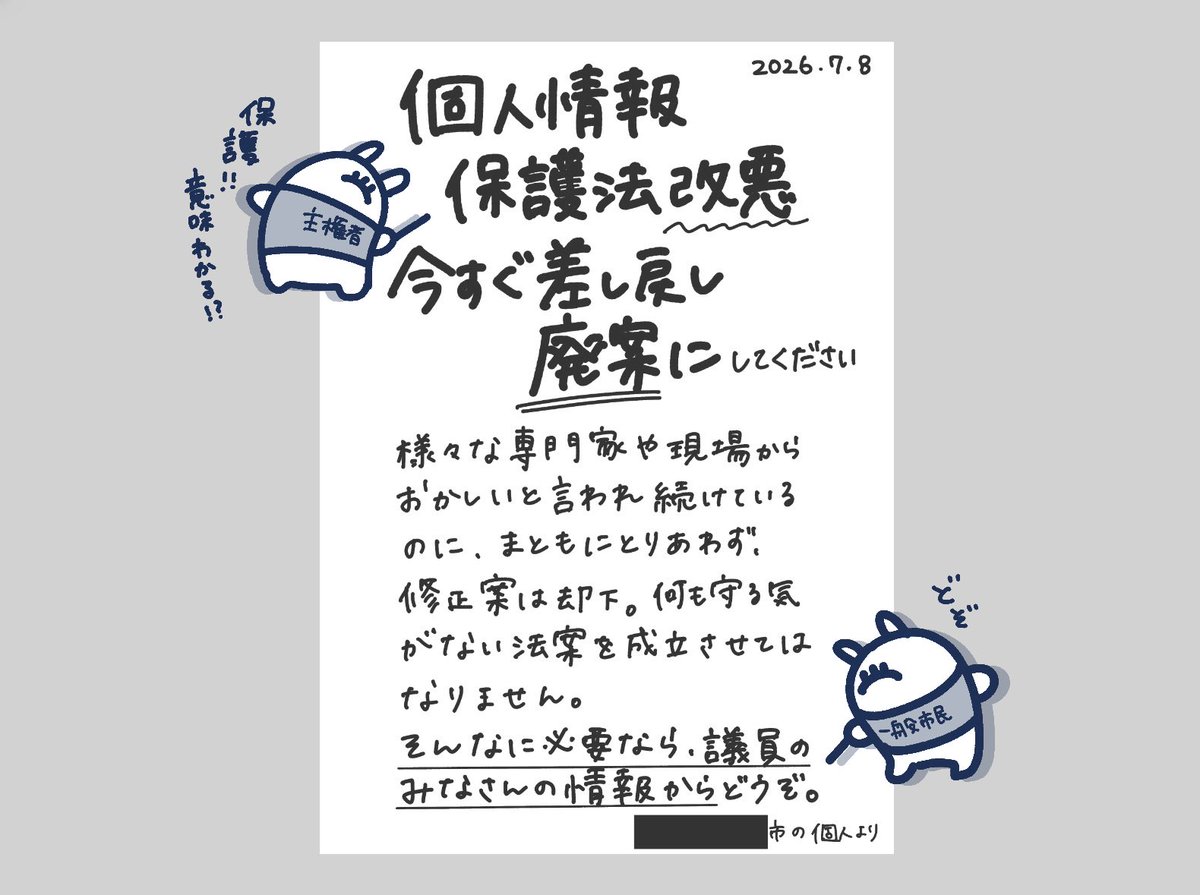 2026.7.8
個人情報
保護法改悪
今すぐ差し戻し
廃案にしてください
様々な専門家や現場から
おかしいと言われ続けている
のに、まともにとりあわず、
修正案は却下。何も守る気
がない法案を成立させては
なりません。
そんなに必要なら、議員の
みなさんの情報からどうぞ。
市の個人より
保護!!
意味わかる!?
主権者
どぞ
一般市民